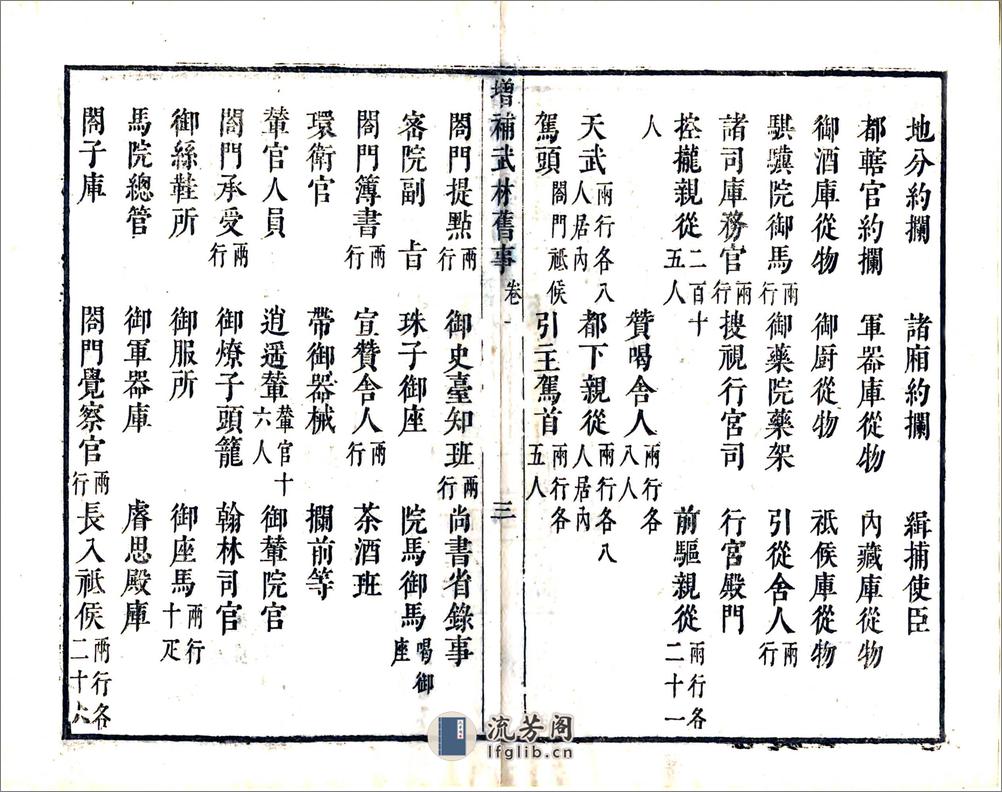 地分約攔　諸廂約攔　緝捕使臣
都轄官約攔　軍器庫從物　內藏庫從物
御酒庫從物　御厨從物　祗候庫從物
騏驥院御馬兩行　御藥院藥架　引從舍人兩行
諸司庫務官兩行　搜視行宮司　行宮殿門
控攏親從二百十五人　前驅親從兩行各二十一
人　贊喝舍人兩行各八人
天武兩行各八人居內　都下親從兩行各八人居內
駕頭閤門祗候　引主駕首兩行各五人
增補武林舊事　卷一　三
閤門提點兩行　御史臺知班兩行　尚書省錄事
密院副㫖　珠子御座　院馬御馬喝御座
閤門簿書兩行　宣贊舍人兩行　茶酒班
環衛官　帶御器械　攔前等
輦官人員　逍遥輦輦官十六人　御輦院官
閤門承受兩行　御燎子頭籠　翰林司官
御絲鞋所　御服所　御座馬兩行十疋
馬院總管　御軍器庫　睿思殿庫
閤子庫　閤門覺察官兩行　長入祗候兩行各二十六
流芳阁
lfglib.cn